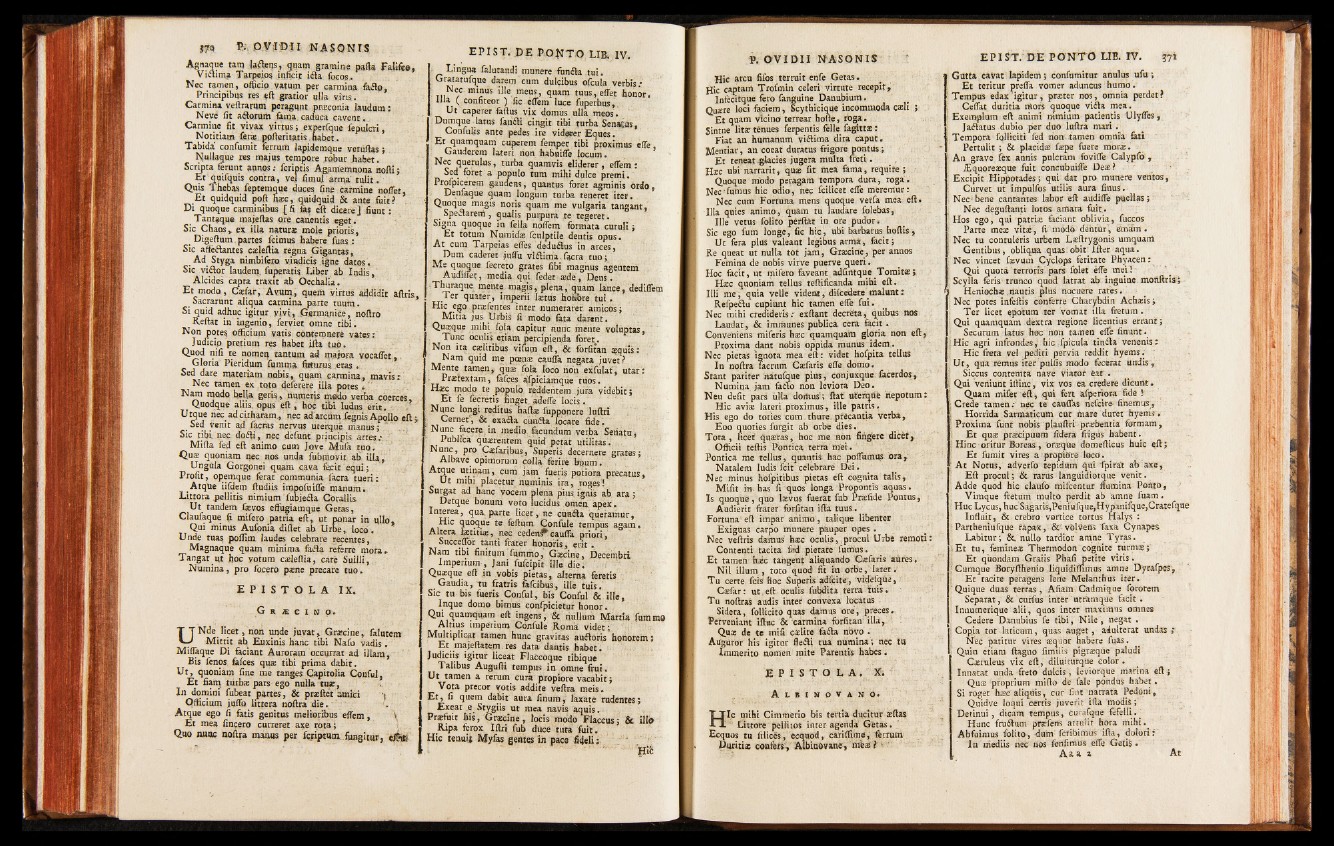 370 P. OVIDII NASONIS
Agnaque tam lactens, quam gramine pasta Falisco,
Victima Tarpeios inficit icta focos.
Nec tamen, officio vatum per carmina facto,
Principibus res est gratior ulla viris.
Carmina vestrarum peragunt præconia laudum:
Neve sit actorum fama caduca cavent.
Carmine fit vivax virtus; expersque sepulcri,
Notitiam seræ posteritatis habet.
Tabida consumit ferrum lapidemque vetustas;
Nullaque res majus tempore robur habet.
Scripta ferunt annos: scriptis Agamemnona nosti;
Et quisquis contra, vel simul arma tulit.
Quis Thebas septemque duces sine carmine nosset,
Et quidquid post hæc, quidquid & ante fuit?
Di quoque carminibus [ si fas est dicere ] fiunt:
Tantaque majestas ore canentis eget.
Sic Chaos, ex illa naturæ mole prioris,
Digestum partes scimus habere suas:
Sic affectantes cælestia regna Gigantas,
Ad Styga nimbifero vindicis igne datos.
Sic victor laudem superatis Liber ab Indis,
Alcides capta traxit ab Oechalia.
Et modo, Cæsar, Avum, quem virtus addidit astris,
Sacrarunt aliqua carmina parte tuum.
Si quid adhuc igitur vivi, Germanice, nostro
Restat in ingenio, serviet omne tibi.
Non potes officium vatis contemnere vates:
Judicio pretium res habet ista tuo.
Quod nisi te nomen tantum ad majora vocasset,
Gloria Pieridum summa futurus eras.
Sed dare materiam nobis, quam carmina, mavis:
Nec tamen ex toto deserere illa potes.
Nam modo bella geris, numeris modo verba coerces,
Quodque aliis opus est, hoc tibi ludus erit.
Utque nec ad citharam, nec ad arcum segnis Apollo est;
Sed venit ad sacras nervus uterque manus;
Sic tibi nec docti, nec desunt principis artes:
Mista sed est animo cum Jove Musa tuo.
Quæ quoniam nec nos unda submovit ab illa,
Ungula Gorgonei quam cava fecit equi;
Prosit, opemque ferat communia sacra tueri:
Atque iisdem studiis imposuisse manum.
Littora pellitis nimium subjecta Corallis
Ut tandem sævos effugiamque Getas,
Clausaque si misero patria est, ut ponar in ullo,
Qui minus Ausonia distet ab Urbe, loco.
Unde tuas possim laudes celebrare recentes,
Magnaque quam minima facta referre mora.
Tangat ut hoc votum cælestia, care Suilli,
Numina, pro socero pæne precare tuo.
EPISTOLA IX.
GRÆCINO.
UNde licet, non unde juvat, Græcine, salutem
Mittit ab Euxinis hanc tibi Naso vadis.
Missaque Di faciant Auroram occurrat ad illam,
Bis senos fasces quæ tibi prima dabit.
Ut, quoniam sine me tanges Capitolia Consul,
Et fiam turbæ pars ego nulla tuæ,
In domini subeat partes, & præstet amici
Officium jusso littera nostra die.
Atque ego si fatis genitus melioribus essem,
Et mea sincero curreret axe rota;
Quo nunc nostra manus per scriptum fungitur, esset
EPIST. DE PONTO LIB. IV.
Lingua salutandi munere functa tui.
Gratatusque darem cum dulcibus oscula verbis:
Nec minus ille meus, quam tuus, esset honor.
Illa ( confiteor ) sic essem luce superbus,
Ut caperet fastus vix domus ulla meos.
Dumque latus sancti cingit tibi turba Senatus,
Consulis ante pedes ire viderer Eques.
Et quamquam cuperem semper tibi proximus esse,
Gauderem lateri non habuisse locum.
Nec querulus, turba quamvis eliderer, essem:
Sed foret a populo tum mihi dulce premi.
Prospicerem gaudens, quantus foret agminis ordo,
Densaque quam longum turba teneret iter.
Quoque magis noris quam me vulgaria tangant,
Spectarem, qualis purpura te tegeret.
Signa quoque in sella nossem formata curuli;
Et totum Numidæ sculptile dentis opus.
At cum Tarpeias esses deductus in arces,
Dum caderet jussu victima sacra tuo;
Me quoque secreto grates sibi magnus agentem
Audisset, media qui sedet æde, Deus.
Thuraque mente magis, plena, quam lance, dedissem
Ter quater, imperii lætus honore tui.
Hic ego præsentes inter numerarer amicos;
Mitia jus Urbis si modo fata darent.
Quæque mihi sola capitur nunc mente voluptas,
Tunc oculis etiam percipienda foret.
Non ita cælitibus visum est, & forsitan æquis:
Nam quid me pœnæ caussa negata juvet?
Mente tamen, quæ sola loco non exsulat, utar:
Prætextam, fasces aspiciamque tuos.
Hæc modo te populo reddentem jura videbit;
Et se secretis finget adesse locis.
Nunc longi reditus hastæ supponere lustri
Cernet, & exacta cuncta locare fide.
Nunc facere in medio facundum verba Senatu,
Publica quærentem quid petat utilitas.
Nunc, pro Cæsaribus, Superis decernere grates;
Albave opimorum colla ferire boum.
Atque utinam, cum jam fueris potiora precatus,
Ut mihi placetur numinis ira, roges!
Surgat ad hanc vocem plena pius ignis ab ara;
Detque bonum voto lucidus omen apex.
Interea, qua parte licet, ne cuncta queramur,
Hic quoque te festum Consule tempus agam.
Altera lætitiæ, nec cedens caussa priori,
Successor tanti frater honoris, erit.
Nam tibi finitum summo, Græcine, Decembri
Imperium, Jani suscipit ille die.
Quæque est in vobis pietas, alterna feretis
Gaudia, tu fratris fascibus, ille tuis.
Sic tu bis fueris Consul, bis Consul & ille,
Inque domo bimus conspicietur honor.
Qui quamquam est ingens, & nullum Martia summo
Altius imperium Consule Roma videt;
Multiplicat tamen hunc gravitas auctoris honorem:
Et majestatem res data dantis habet.
Judiciis igitur liceat Flaccoque tibique
Talibus Augusti tempus in omne frui.
Ut tamen a rerum cura propiore vacabit;
Vota precor votis addite vestra meis.
Et, si quem dabit aura sinum, laxate rudentes;
Exeat e Stygiis ut mea navis aquis.
Præfuit his, Græcine, locis modo Flaccus; & illo
Ripa ferox Istri sub duce tuta fuit.
Hic tenuit Mysas gentes in pace fideli:
Hic
P. OVIDII NASONIS
Hic arcu fisos terruit ense Getas.
Hic captam Trosmin celeri virtute recepit,
Infecitque fero sanguine Danubium.
Quære loci faciem, Scythicique incommoda cæli;
Et quam vicino terrear hoste, roga.
Sintne litæ tenues serpentis felle sagittæ:
Fiat an humanum victima dira caput.
Mentiar, an coeat duratus frigore pontus;
Et teneat glacies jugera multa freti.
Hæc ubi narrarit, quæ sit mea fama, require;
Quoque modo peragam tempora dura, roga.
Nec sumus hic odio, nec scilicet esse meremur:
Nec cum Fortuna mens quoque versa mea est.
Illa quies animo, quam tu laudare solebas,
Ille vetus solito perstat in ore pudor.
Sic ego sum longe, sic hic, ubi barbarus hostis,
Ut fera plus valeant legibus arma, facit;
Re queat ut nulla tot jam, Græcine, per annos
Femina de nobis virve puerve queri.
Hoc facit, ut misero faveant adsintque Tomitæ;
Hæc quoniam tellus testificanda mihi est.
Illi me, quia velle vident, discedere malunt:
Respectu cupiunt hic tamen esse sui.
Nec mihi credideris: exstant decreta, quibus nos
Laudat, & immunes publica cera facit.
Conveniens miseris hæc quamquam gloria non est,
Proxima dant nobis oppida munus idem.
Nec pietas ignota mea est: videt hospita tellus
In nostra sacrum Cæsaris esse domo.
Stant pariter natusque pius, conjuxque sacerdos,
Numina jam facto non leviora Deo.
Neu desit pars ulla domus; stat uterque nepotum:
Hic aviæ lateri proximus, ille patris.
His ego do toties cum thure precantia verba,
Eoo quoties surgit ab orbe dies.
Tota, licet quæras, hoc me non fingere dicet,
Officii testis Pontica terra mei.
Pontica me tellus, quantis hac possumus ora,
Natalem ludis scit celebrare Dei.
Nec minus hospitibus pietas est cognita talis,
Misit in has si quos longa Propontis aquas.
Is quoque, quo lævos fuerat sub Præside Pontus,
Audierit frater forsitan ista tuus.
Fortuna est impar animo, talique libenter
Exiguas carpo munere pauper opes.
Nec vestris damus hæc oculis, procul Urbe remoti:
Contenti tacita sed pietate sumus.
Et tamen hæc tangent aliquando Cæsaris aures.
Nil illum, toto quod fit in orbe, latet.
Tu certe scis hoc Superis adscite, videsque,
Cæsar: ut est oculis subdita terra tuis.
Tu nostras audis inter convexa locatus
Sidera, sollicito quas damus ore, preces.
Perveniant istuc & carmina forsitan illa,
Quæ de te misi cælite facta novo.
Auguror his igitur flecti tua numina; nec tu
Immerito nomen mite Parentis habes.
EPISTOLA X.
ALBINOVANO.
HIc mihi Cimmerio bis tertia ducitur æstas
Littore pellitos inter agenda Getas.
Ecquos tu silices, ecquod, carissime, ferrum
Duritiæ confers, Albinovane, meæ?
EPIST. DE PONTO LIB. IV. 371
Gutta cavat lapidem; consumitur anulus usu;
Et teritur pressa vomer aduncus humo.
Tempus edax igitur, præter nos, omnia perdet?
Cessat duritia mors quoque victa mea.
Exemplum est animi nimium patientis Ulysses,
Jactatus dubio per duo lustra mari.
Tempora solliciti sed non tamen omnia fati
Pertulit; & placidæ sæpe fuere moræ.
An grave sex annis pulcram fovisse Calypso,
Æquoreæque fuit concubuisse Deæ?
Excipit Hippotades; qui dat pro munere ventos,
Curvet ut impulsos utilis aura sinus.
Nec bene cantantes labor est audisse puellas;
Nec degustanti lotos amara fuit.
Hos ego, qui patriæ faciant oblivia, succos
Parte meæ vitæ, si modo dentur, emam.
Nec tu contuleris urbem Læstrygonis umquam
Gentibus, obliqua quas obit Ister aqua.
Nec vincet sævum Cyclops feritate Phyacen:
Qui quota terroris pars solet esse mei!
Scylla feris trunco quod latrat ab inguine monstris;
Heniochæ nautis plus nocuere rates.
Nec potes infestis conferre Charybdin Achæis;
Ter licet epotum ter vomat illa fretum.
Qui quamquam dextra regione licentius errant;
Securum latus hæc non tamen esse sinunt.
Hic agri infrondes, hic spicula tincta venenis:
Hic freta vel pediti pervia reddit hyems.
Ut, qua remus iter pulsis modo fecerat undis,
Siccus contemta nave viator eat.
Qui veniunt istinc, vix vos ea credere dicunt.
Quam miser est, qui fert asperiora fide!
Crede tamen: nec te caussas nescire sinemus,
Horrida Sarmaticum cur mare duret hyems.
Proxima sunt nobis plaustri præbentia formam,
Et quæ præcipuum sidera frigus habent.
Hinc oritur Boreas, oræque domesticus huic est;
Et sumit vires a propiore loco.
At Notus, adverso tepidum qui spirat ab axe,
Est procul; & rarus languidiorque venit.
Adde quod hic clauso miscentur flumina Ponto,
Vimque fretum multo perdit ab amne suam.
Huc Lycus, huc Sagaris, Peniusque, Hypanisque, Cratesque
Influit, & crebro vortice tortus Halys:
Partheniusque rapax, & volvens saxa Cynapes
Labitur; & nullo tardior amne Tyras.
Et tu, femineæ Thermodon cognite turmæ;
Et quondam Graiis Phasi petite viris.
Cumque Borysthenio liquidissimus amne Dyraspes,
Et tacite peragens lene Melanthus iter.
Quique duas terras, Asiam Cadmique sororem
Separat, & cursus inter utramque facit.
Innumerique alii, quos inter maximus omnes
Cedere Danubius se tibi, Nile, negat.
Copia tot laticum, quas auget, adulterat undas;
Nec patitur vires æquor habere suas.
Quin etiam stagno similis pigræque paludi
Cæruleus vix est, diluiturque color.
Innatat unda freto dulcis, leviorque marina est;
Quæ proprium misto de sale pondus habet.
Si roget hæc aliquis, cur sint narrata Pedoni,
Quidve loqui certis juverit ista modis;
Detinui, dicam tempus, curasque fefelli.
Hunc fructum præsens attulit hora mihi.
Abfuimus solito, dum scribimus ista, dolori:
In mediis nec nos sensimus esse Getis.
Aaa 2 At